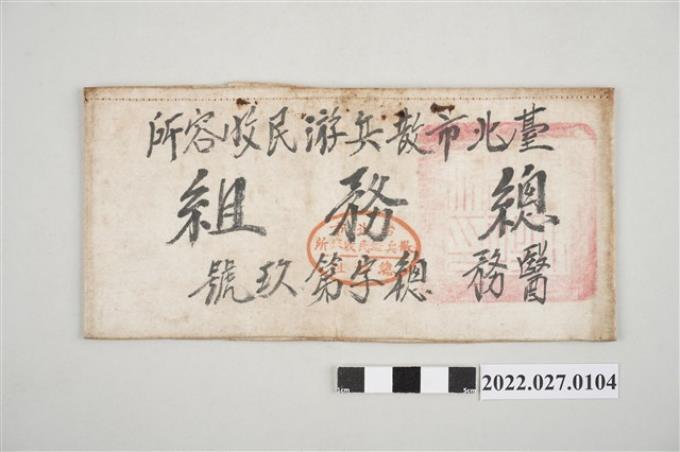 臺北市散兵游民收容所
總務組
醫務 總字第玖號
2022.027.0104
1cm
5cm